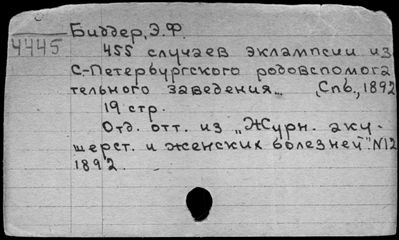 Биддер, Э.Ф.
4445
455 случаев эклампсии из
С-Петербургского родовспомога
тельного заведения... Спб., 1892
19 стр.
Отд. отт. из „Журн. аку-
шерст. и женских болезней". N12
1892.